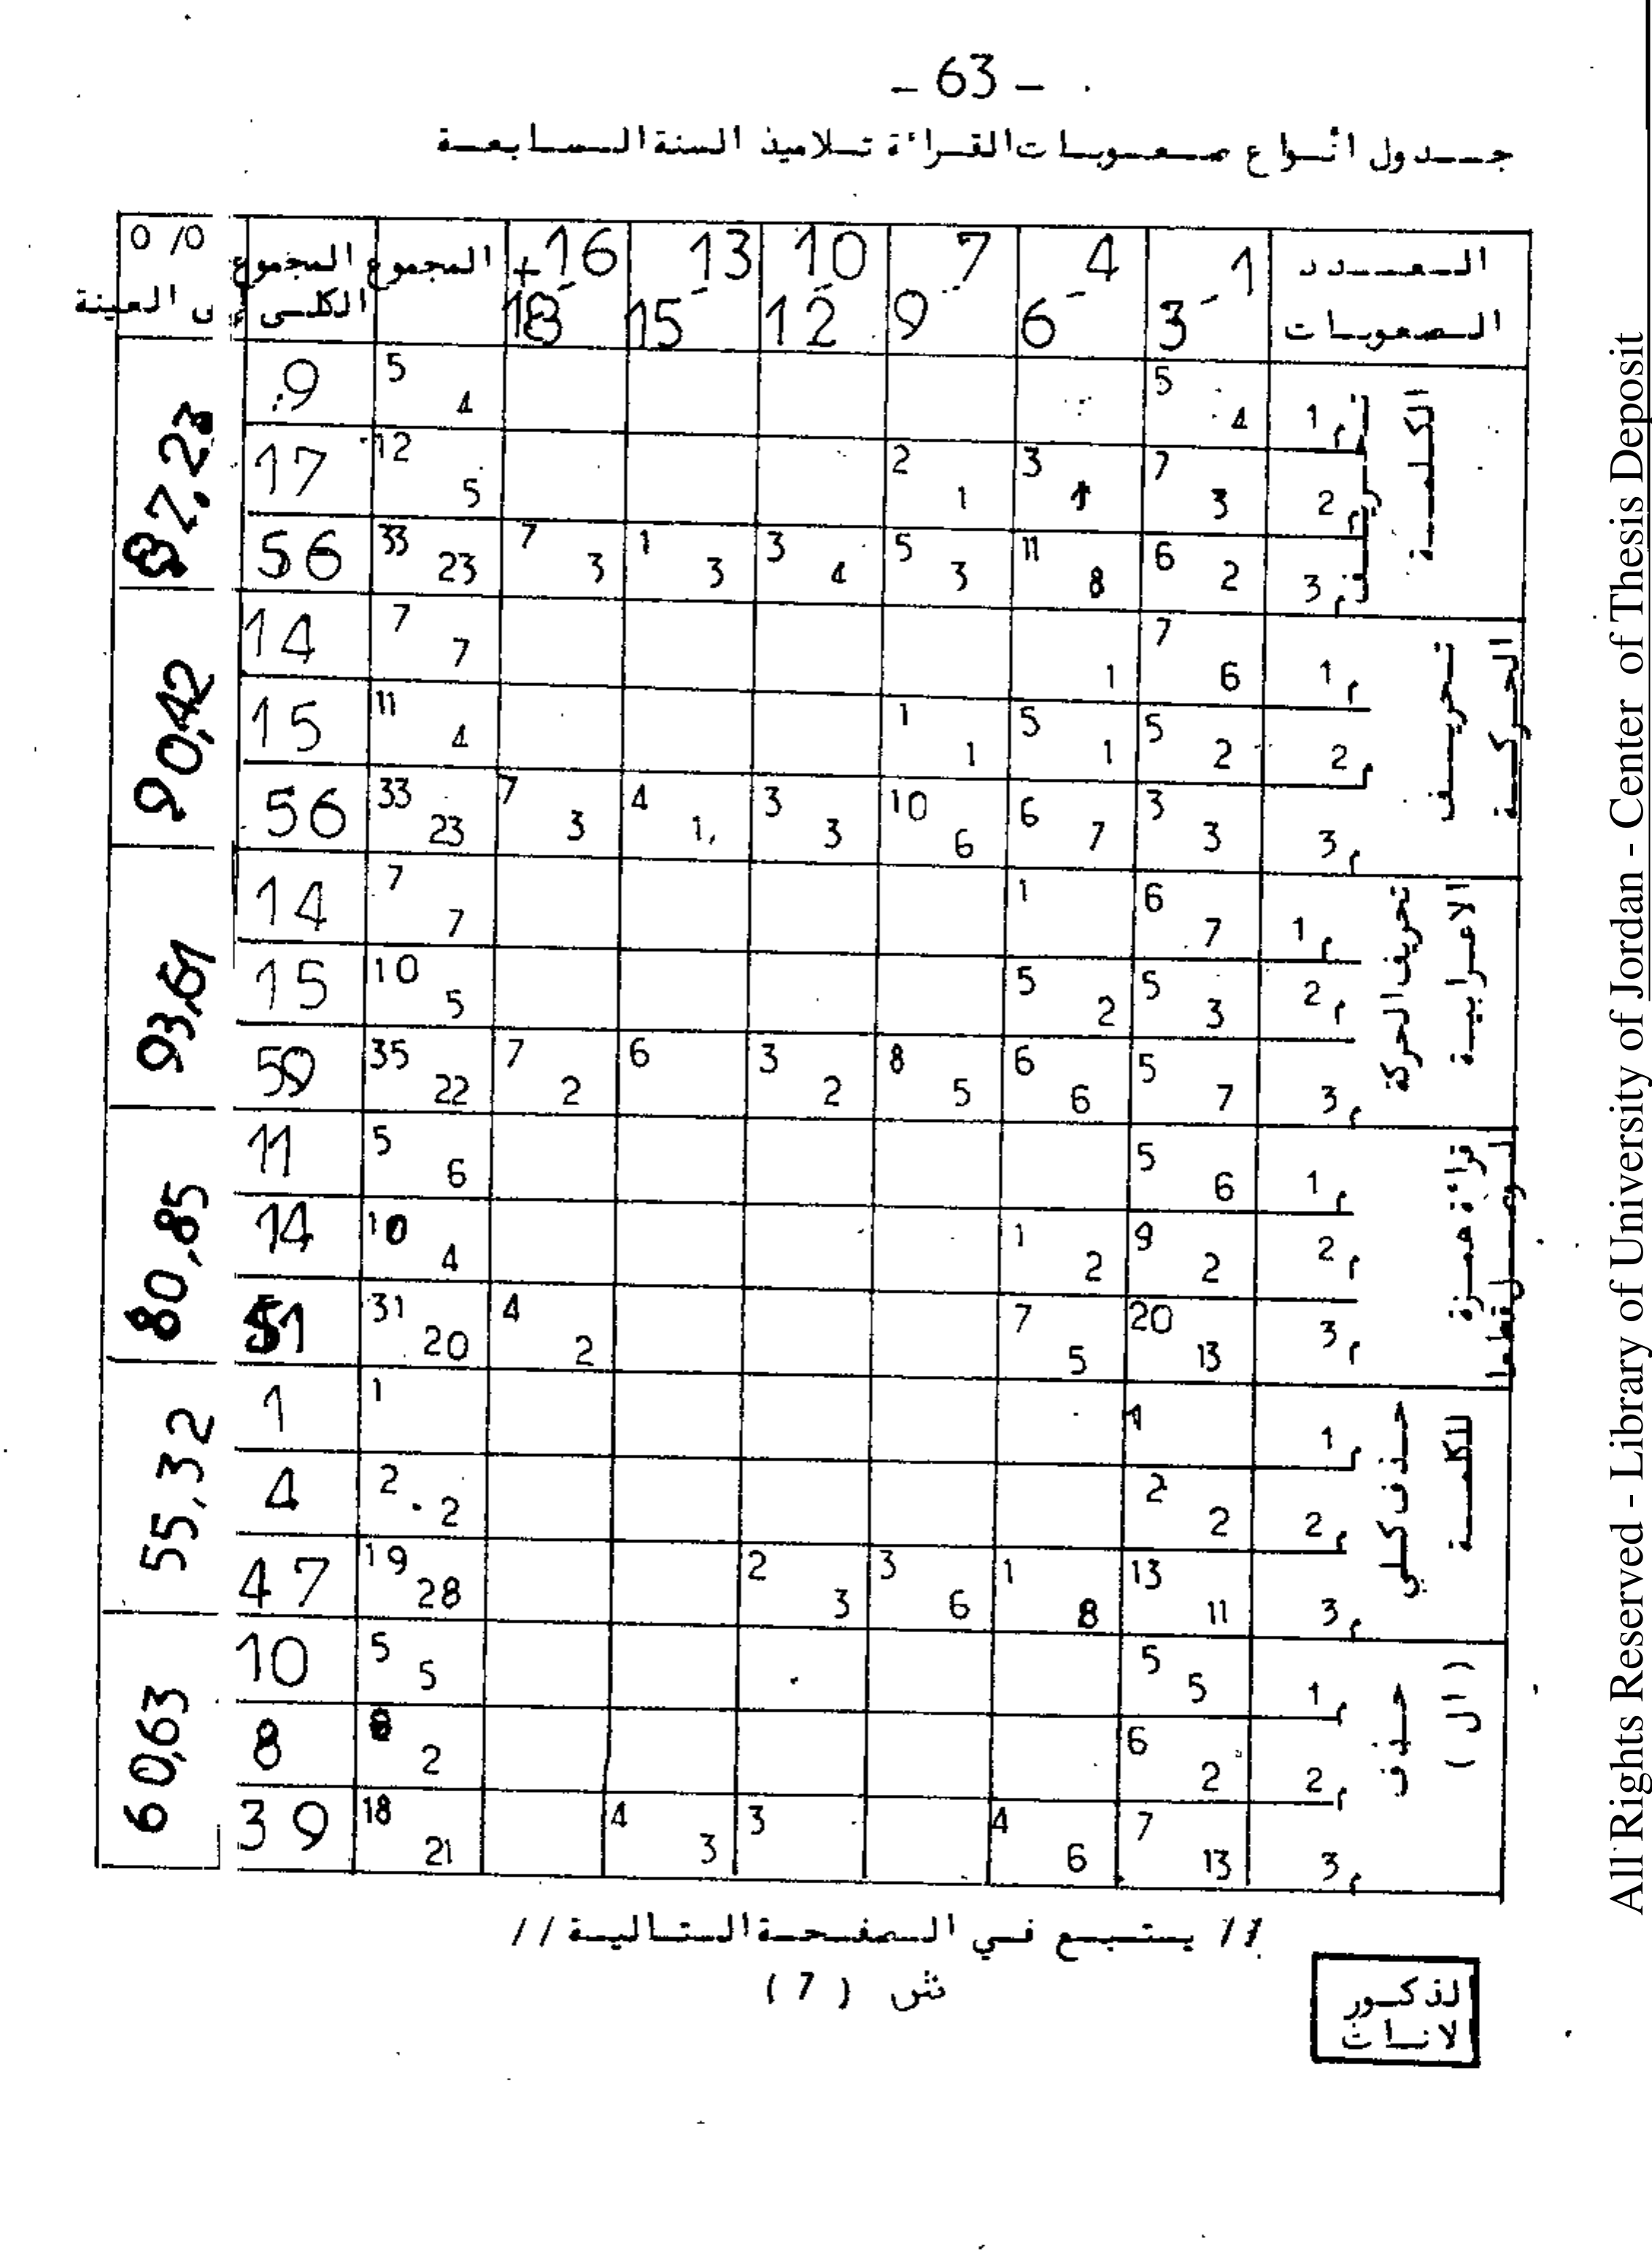 - 63 -
جدول أنواع صعوبات القراءة تلاميذ السنة السابعة
العدد 1 - 3 4 - 6 7 - 9 10 - 12 13 - 15 16 - 18 + المجموع المجموع 0/0
الصعوبات الكلي العينة
الكلمة
م1 5 4 5 4 9
م2 7 3 3 1 2 1 12 5 17
م3 6 2 11 8 5 3 3 4 1 3 7 3 33 23 56
87,23
تحريف الحركة
م1 7 6 1 7 7 14
م2 5 2 5 1 1 1 11 4 15
م3 3 3 6 7 10 6 3 3 4 1 7 3 33 23 56
90,42
تحريف الحركة الاعرابية
م1 6 7 1 7 7 14
م2 5 3 5 2 10 5 15
م3 5 7 6 6 8 5 3 2 6 7 2 35 22 59
93,61
قراءة همزة
م1 5 6 5 6 11
م2 9 2 1 2 10 4 14
م3 20 13 7 5 4 2 31 20 51
80,85
حذف كلي الكلمة
م1 1 1 1
م2 2 2 2 2 4
م3 13 11 1 8 3 6 2 3 19 28 47
55,32
حذف ( ال )
م1 5 5 5 5 10
م2 6 2 2 8
م3 7 13 4 6 3 4 3 18 21 39
60,63
// يتبع في الصفحة التالية //
( 7 )
الذكور
لاناث
All Rights Reserved - Library of University of Jordan - Center of Thesis Deposit